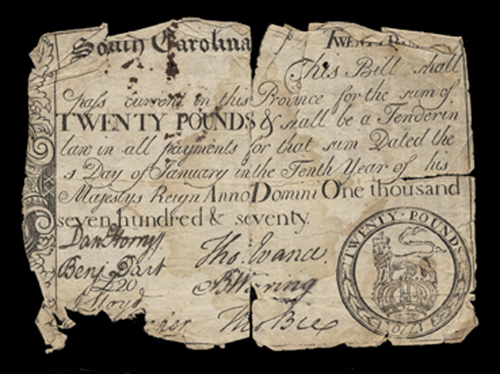 South Carolina TWENTY
This Bill shall
pass current in this Province for the sum of
TWENTY POUNDS & shall be a Tender in
law in all payments for that sum Dated the
Day of January in the Tenth Year of his
Majestys Reign Anno Domini One thousand
seven hundred & seventy.
Dan Horry
Tho. Evance
Benj Dart
£20
F Lloyd
Tho Bee
TWENTY·POUNDS
1770